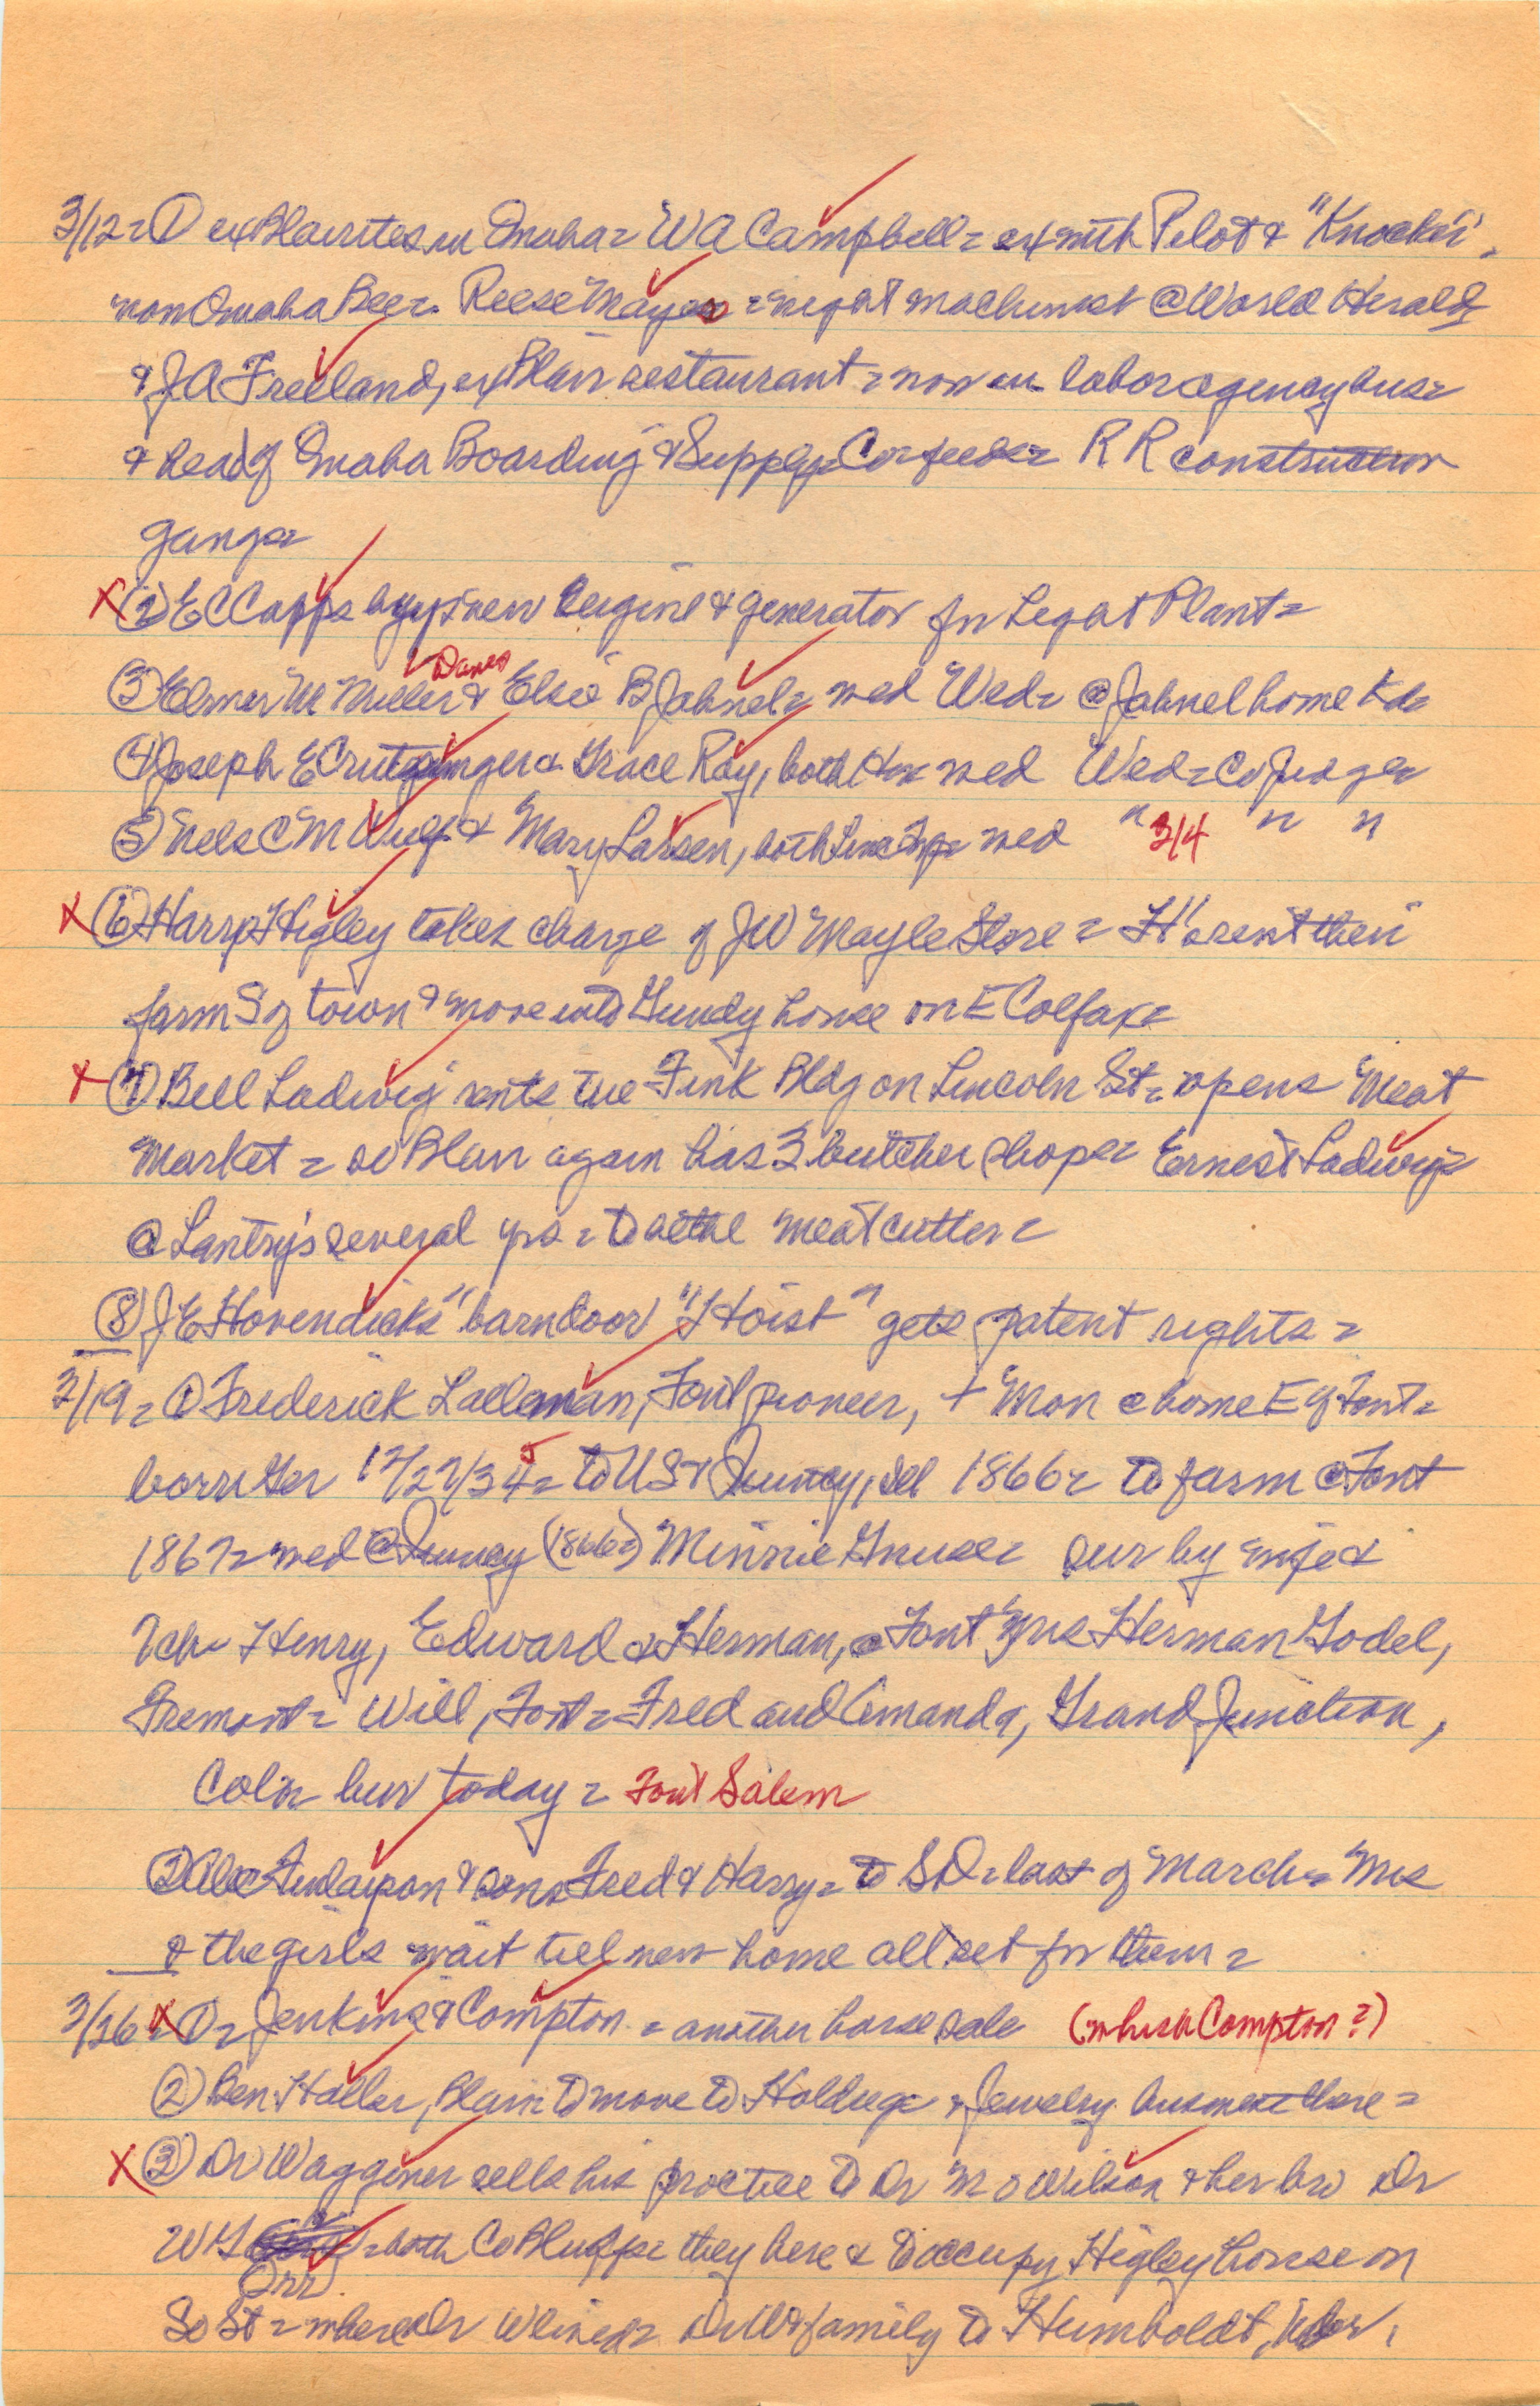 3/12 = ① ex Blairites in Omaha = W A Campbell = ex with Pilot & "Knocker",
now Omaha Bee = Reese Mayes = night machinist @ World Herald =
& J A Freeland, ex Blair restaurant = now in labor agency bus =
& head of Omaha Boarding & Supply Co = feeds = R R construction
gangs =
X ② E C Capps buys new engine & generator for Light Plant =
Danes
③ Elmer M Miller & Elsie B Jahnel = wed Wed = @ Jahnel home K d =
④ Joseph E & Grace Ray, both Hn = wed Wed = Co Judge =
⑤ Nels C M & Mary Larsen, both Linc Twp = wed " 3/4 " "
X ⑥ Harry Higley takes charge of J W Mayle Store = H's rent their
farm S of town & move into Gundy house on E Colfax =
X ⑦ Bill Ladwig rents the Fink Bldg on Lincoln St = opens Meat
Market = so Blair again has 3 butcher shops = Ernest Ladwig =
@ Lantry's several yrs = to be the meat cutter =
⑧ J E Hovendick's "barndoor "Hoist" gets patent rights =
3/19 = ① Frederick Lalleman, Font pioneer, + Mon @ home E of Font =
born Ger 12/27/34 = to US & Quincy, Ill 1866 = to farm @ Font
1867 = wed @ Quincy (1866 =) Minnie Gnuse = sur by wife &
7 ch = Henry, Edward & Herman, @ Font Mrs Herman Godel,
Fremont = Will, Font = Fred and Amanda, Grand Junction,
Colo = bur today = Font Salem
② Alex Finlayson & sons Fred & Harry = to SD = last of March = Mrs
& the girls wait till new home all set for them =
3/26 = X ① = Jenkins & Compton = another horse sale (which Compton?)
② Ben Haller, Blair to move to Holdrege = Jewelry business there =
X ③ Dr Waggener sells his practice to Dr M O Wilson & her bro Dr
W H = both Co Bluffs = they here & to occupy Higley house on
Orr
So St = where Dr W lived = Dr W & family to Humboldt, Nebr.